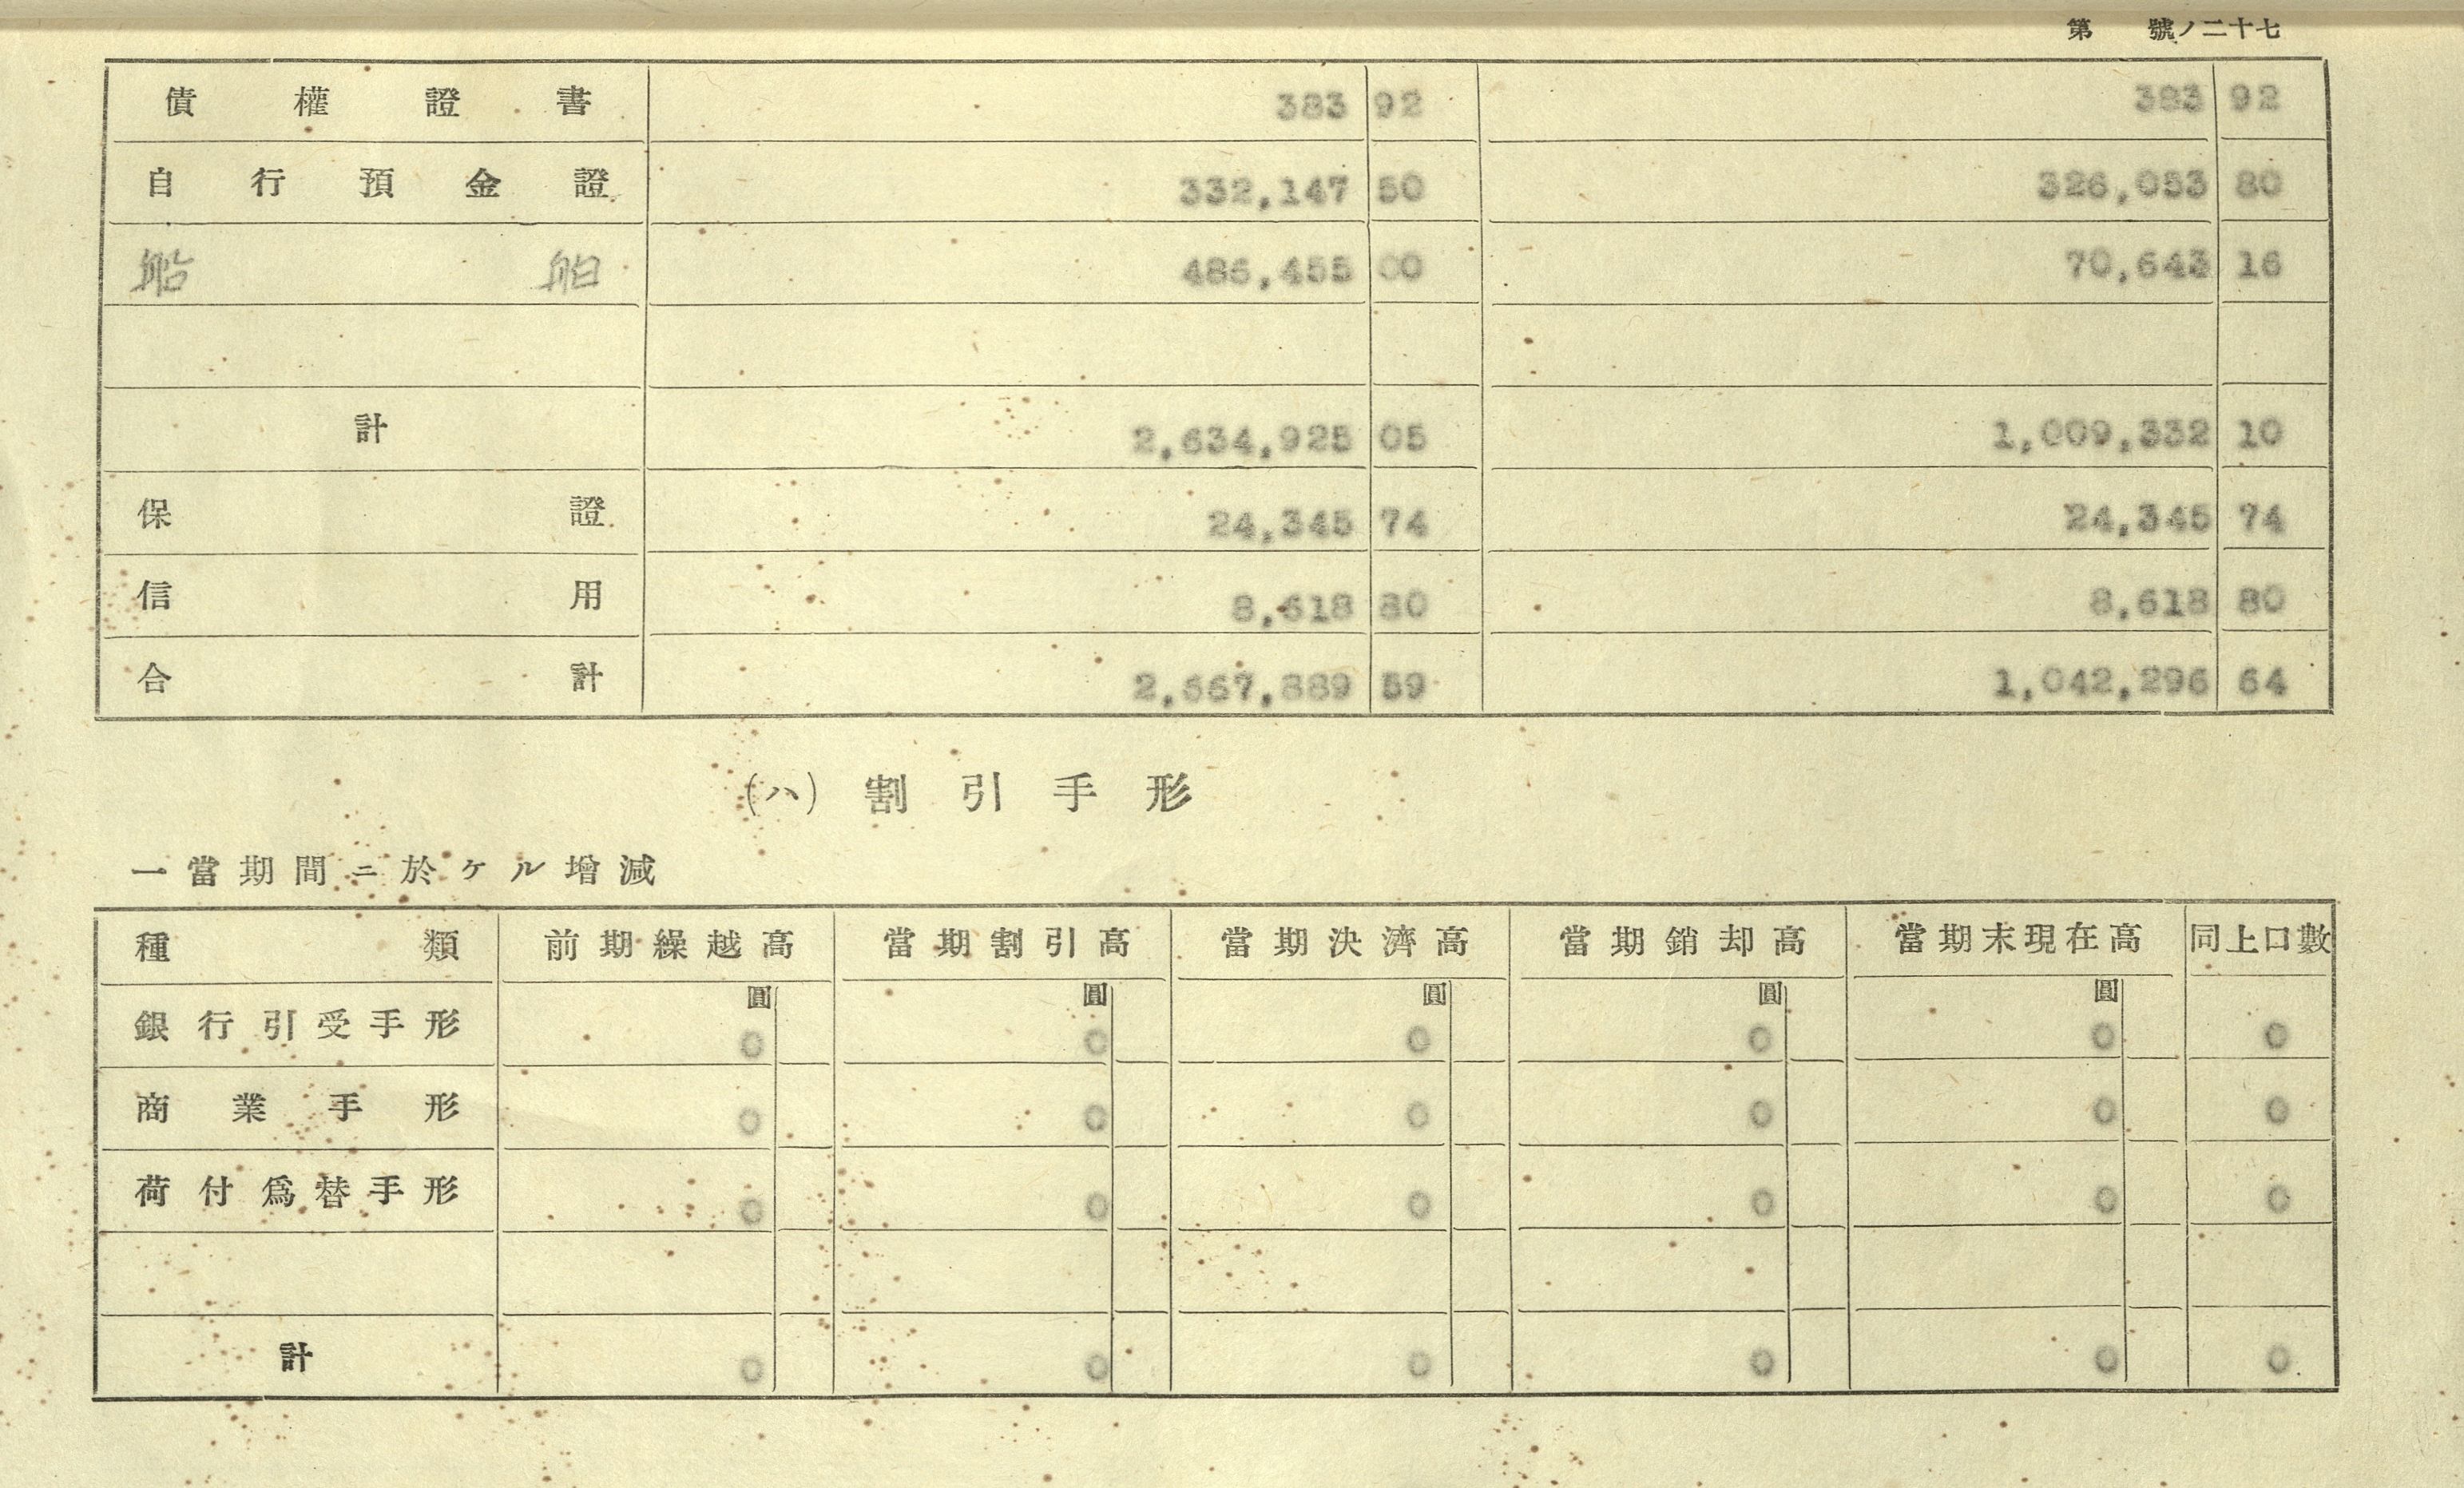 第 號ノ二十七
債權證書 383 92 383 92
自行預金證 332,147 50 326,053 80
船舶 486,455 00 70,643 16
計 2,634,925 05 1,009,332 10
保證 24,345 74 24,345 74
信用 8,618 80 8,618 80
合計 2,667,889 59 1,042,296 64
(ハ) 割引手形
一當期間ニ於ケル增減
種類 前期繰越高 當期割引高 當期決濟高 當期銷却高 當期末現在高 同上口數
圓 圓 圓 圓 圓
銀行引受手形 0 0 0 0 0 0
商業手形 0 0 0 0 0 0
荷付爲替手形 0 0 0 0 0 0
計 0 0 0 0 0 0